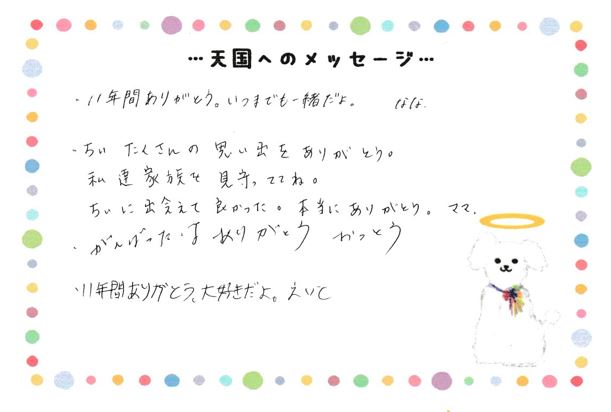 …天国へのメッセージ…
・11年間ありがとう。いつまでも一緒だよ。 なな.
・ちぃ たくさんの思い出をありがとう。
私達家族を見守っててね。
ちぃに出会えて良かった。本当にありがとう。ママ.
・がんばった ありがとう
・11年間ありがとう、大好きだよ。えいと